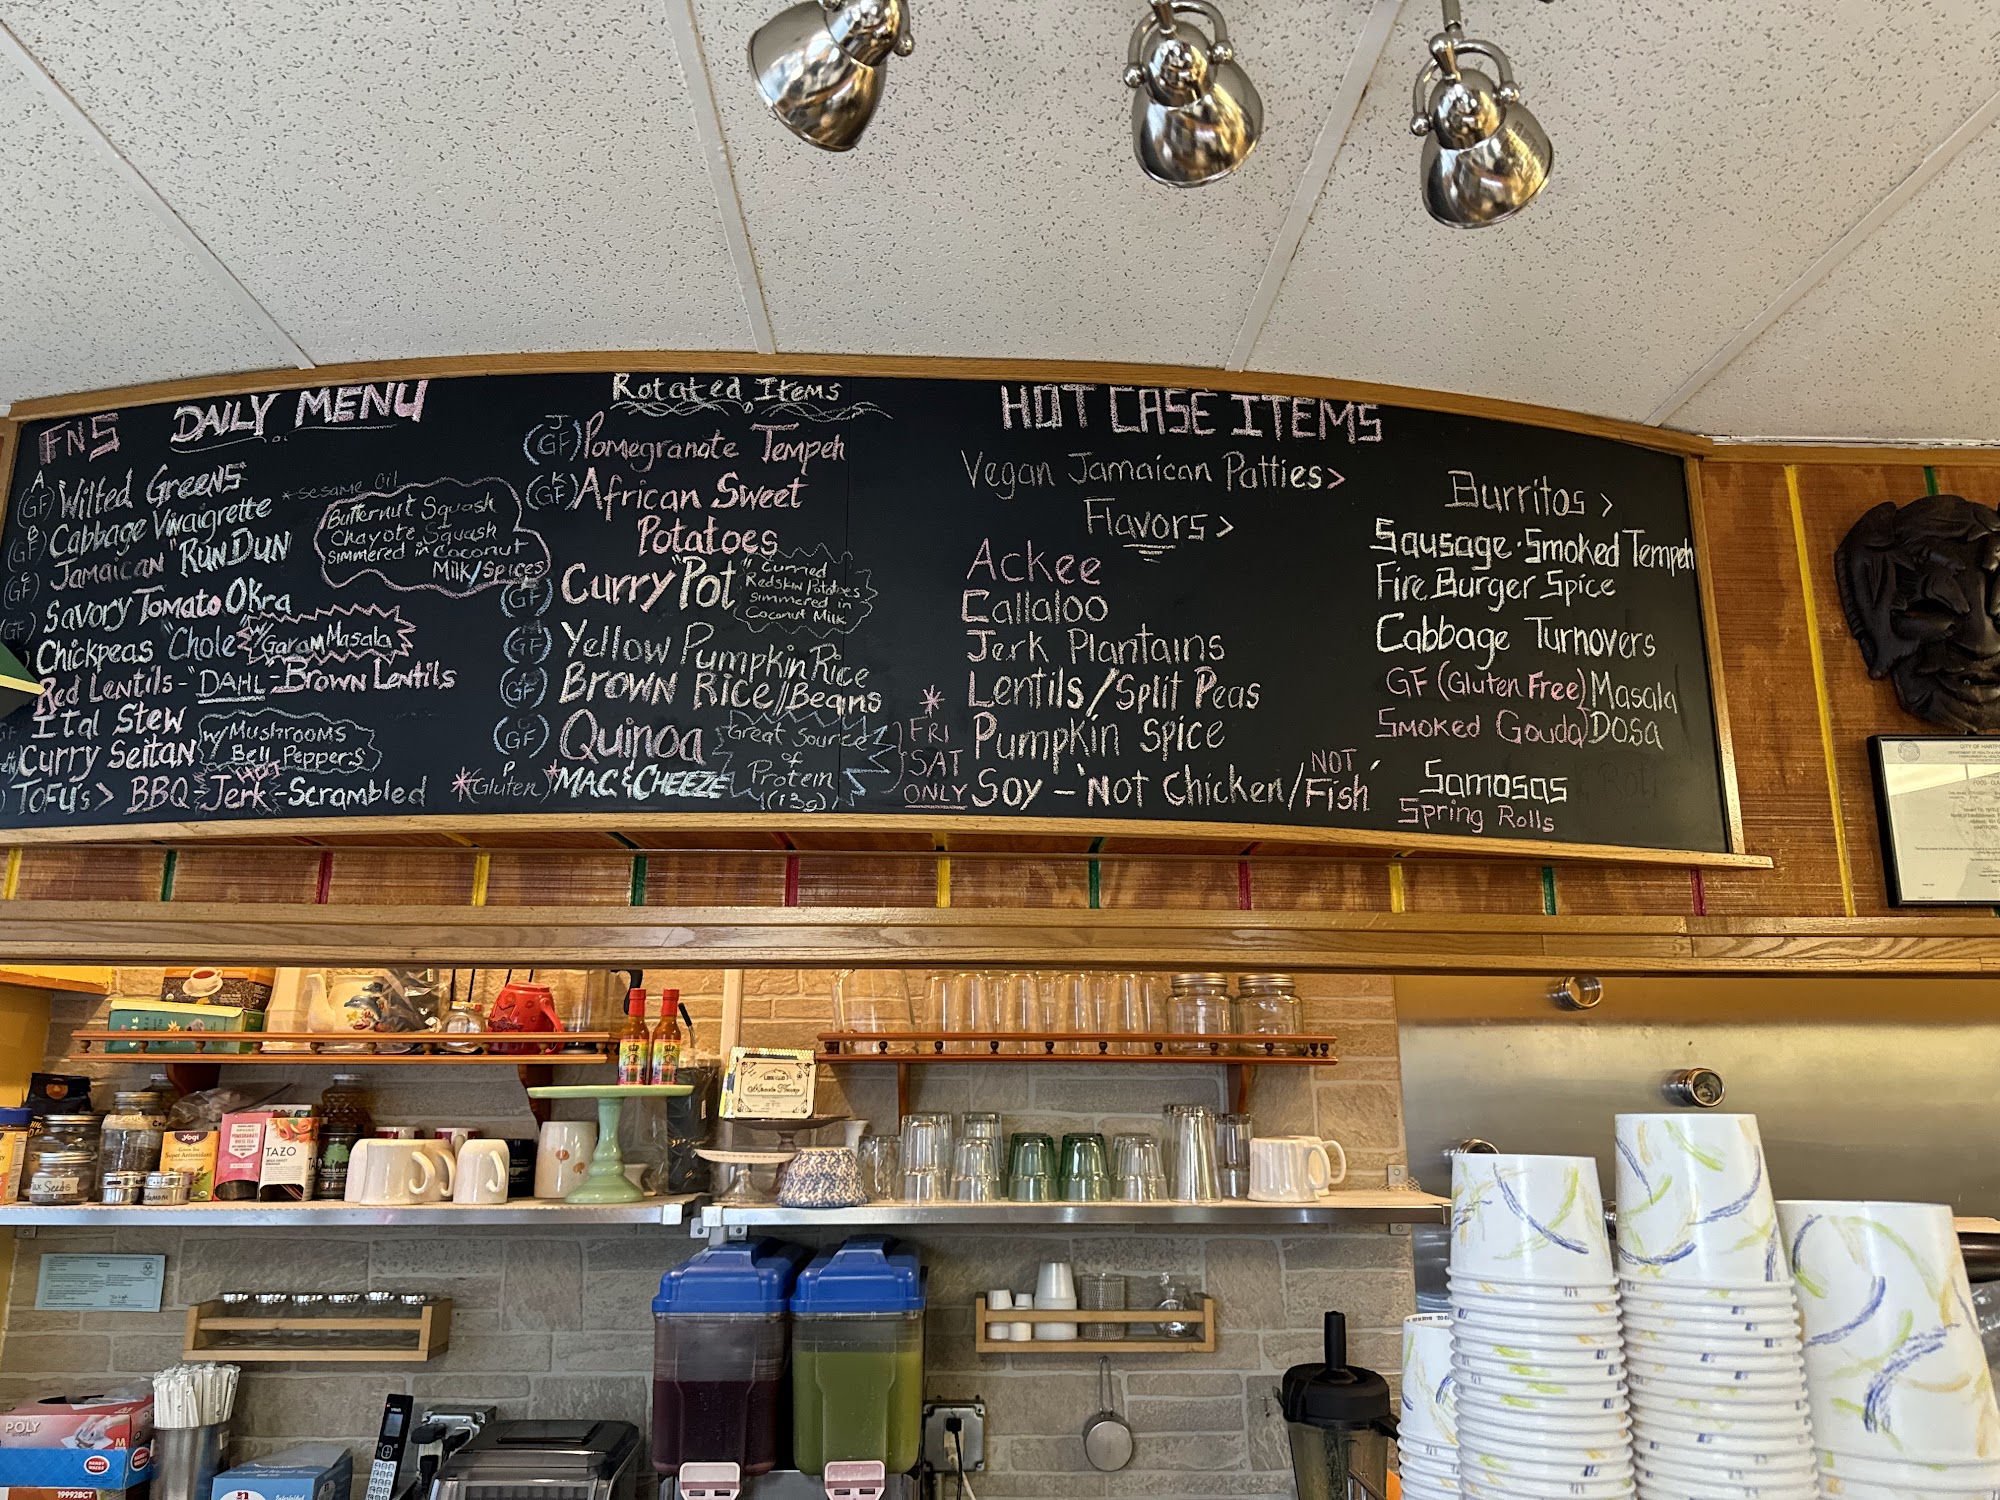 FNS DAILY MENU
A
(GF) Wilted Greens *sesame oil
(GF) Cabbage Vinaigrette
(GF) Jamaican "Run Dun
Butternut Squash
Chayote Squash
simmered in Coconut
Milk/spices
GF) Savory Tomato Okra
Chickpeas "Chole" w/ Garam Masala
Red Lentils - "DAHL - Brown Lentils
Ital Stew
Curry Seitan
w/ Mushrooms
Bell Peppers
Tofu's > BBQ HOT Jerk - Scrambled
Rotated Items
J
(GF) Pomegranate Tempeh
K
(GF) African Sweet
Potatoes
GF Curry "Pot"
Curried
Redskin Potatoes
simmered in
Coconut Milk
(GF) Yellow Pumpkin Rice
(GF) Brown Rice//Beans
(GF) Quinoa
Great Source
of
Protein
(13g)
P
*(Gluten)* Mac & Cheeze
HOT CASE ITEMS
Vegan Jamaican Patties>
Flavors >
Ackee
Callaloo
Jerk Plantains
Lentils/Split Peas
Pumpkin Spice
Soy - 'Not Chicken/NOT Fish'
*
FRI
SAT
ONLY
Burritos >
Sausage · Smoked Tempeh
Fire Burger Spice
Cabbage Turnovers
GF (Gluten Free) Masala
Smoked Gouda) Dosa
Samosas
Spring Rolls
CITY OF HARTFORD
yogi
Super Antioxidant
TAZO
POLY
M
19992BCT